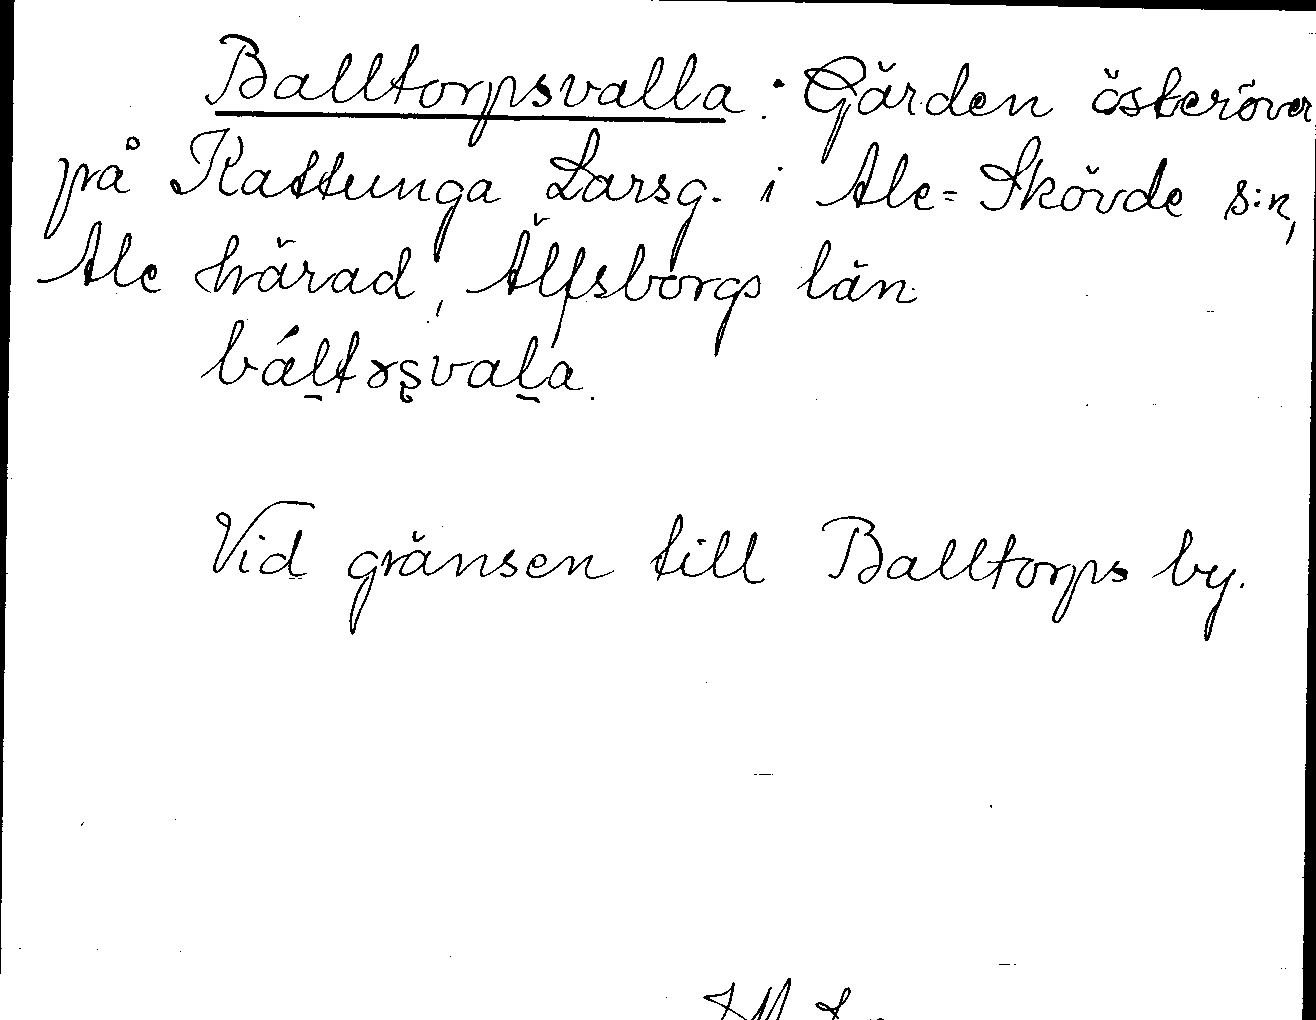 Balltorpsvalla: Gärden österöver
på Kattunga Larsg. i Ale-Skövde s:n,
Ale härad, Älfsborgs län
bál̠tɤʂval̠a.
Vid gränsen till Balltorps by.